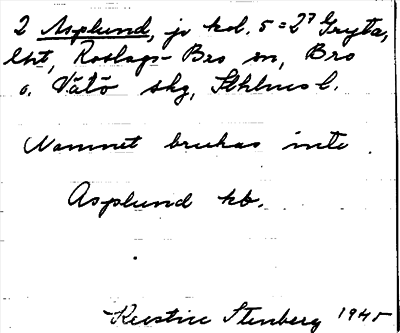 2 Asplund, jo kol. 5 = 2⁷ Gryta,
lht, Roslags-Bro sn, Bro
o. Vätö skg, Sthlms l.
Namnet brukas inte.
Asplund kb.
Kerstin Stenberg 1945